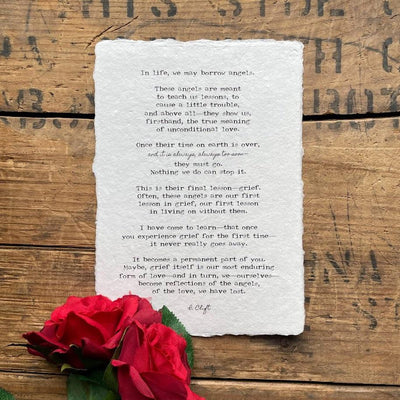 In life, we may borrow angels.
These angels are meant
to teach us lessons, to
cause a little trouble,
and above all—they show us,
firsthand, the true meaning
of unconditional love.
Once their time on earth is over,
and it is always, always too soon—
they must go.
Nothing we do can stop it.
This is their final lesson—grief.
Often, these angels are our first
lesson in grief, our first lesson
in living on without them.
I have come to learn—that once
you experience grief for the first time—
it never really goes away.
It becomes a permanent part of you.
Maybe, grief itself is our most enduring
form of love—and in turn, we—ourselves—
become reflections of the angels,
of the love, we have lost.